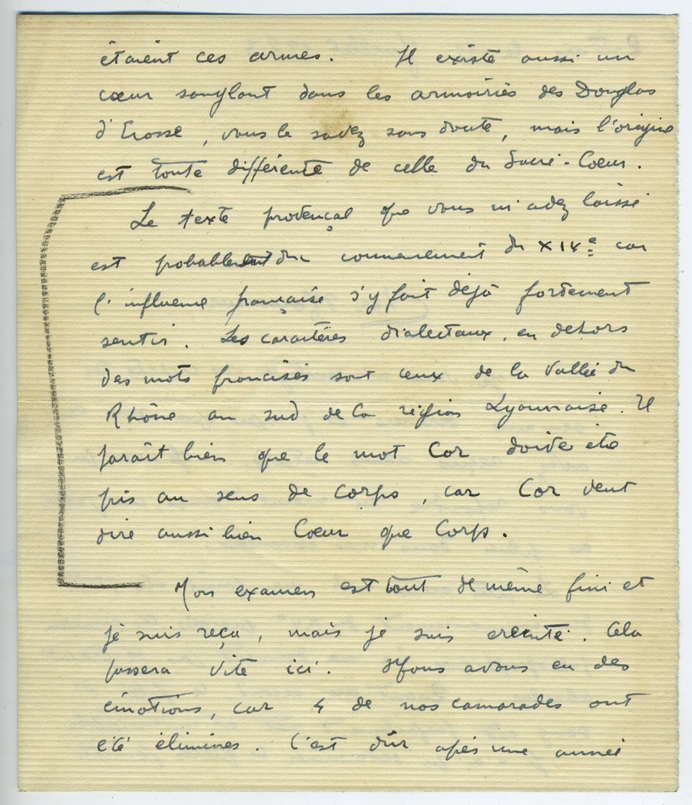 étaient ces armes. Il existe aussi un
cœur sanglant dans les armoiries des Douglas
d'Ecosse, vous le savez sans doute, mais l'origine
est toute différente de celle du Sacré-Coeur.
Le texte provençal que vous m'avez laissé
est probablement du commencement du XIVe car
l'influence française s'y fait déjà fortement
sentir. Les caractères dialectaux, en dehors
des mots francisés sont ceux de la Vallée du
Rhône au sud de la région Lyonnaise. Il
paraît bien que le mot Cor doive être
pris au sens de Corps, car Cor veut
dire aussi bien Coeur que Corps.
Mon examen est tout de même fini et
je suis reçu, mais je suis éreinté. Cela
passera vite ici. Nous avons eu des
émotions, car 4 de nos camarades ont
été éliminés. C'est dûr après une année